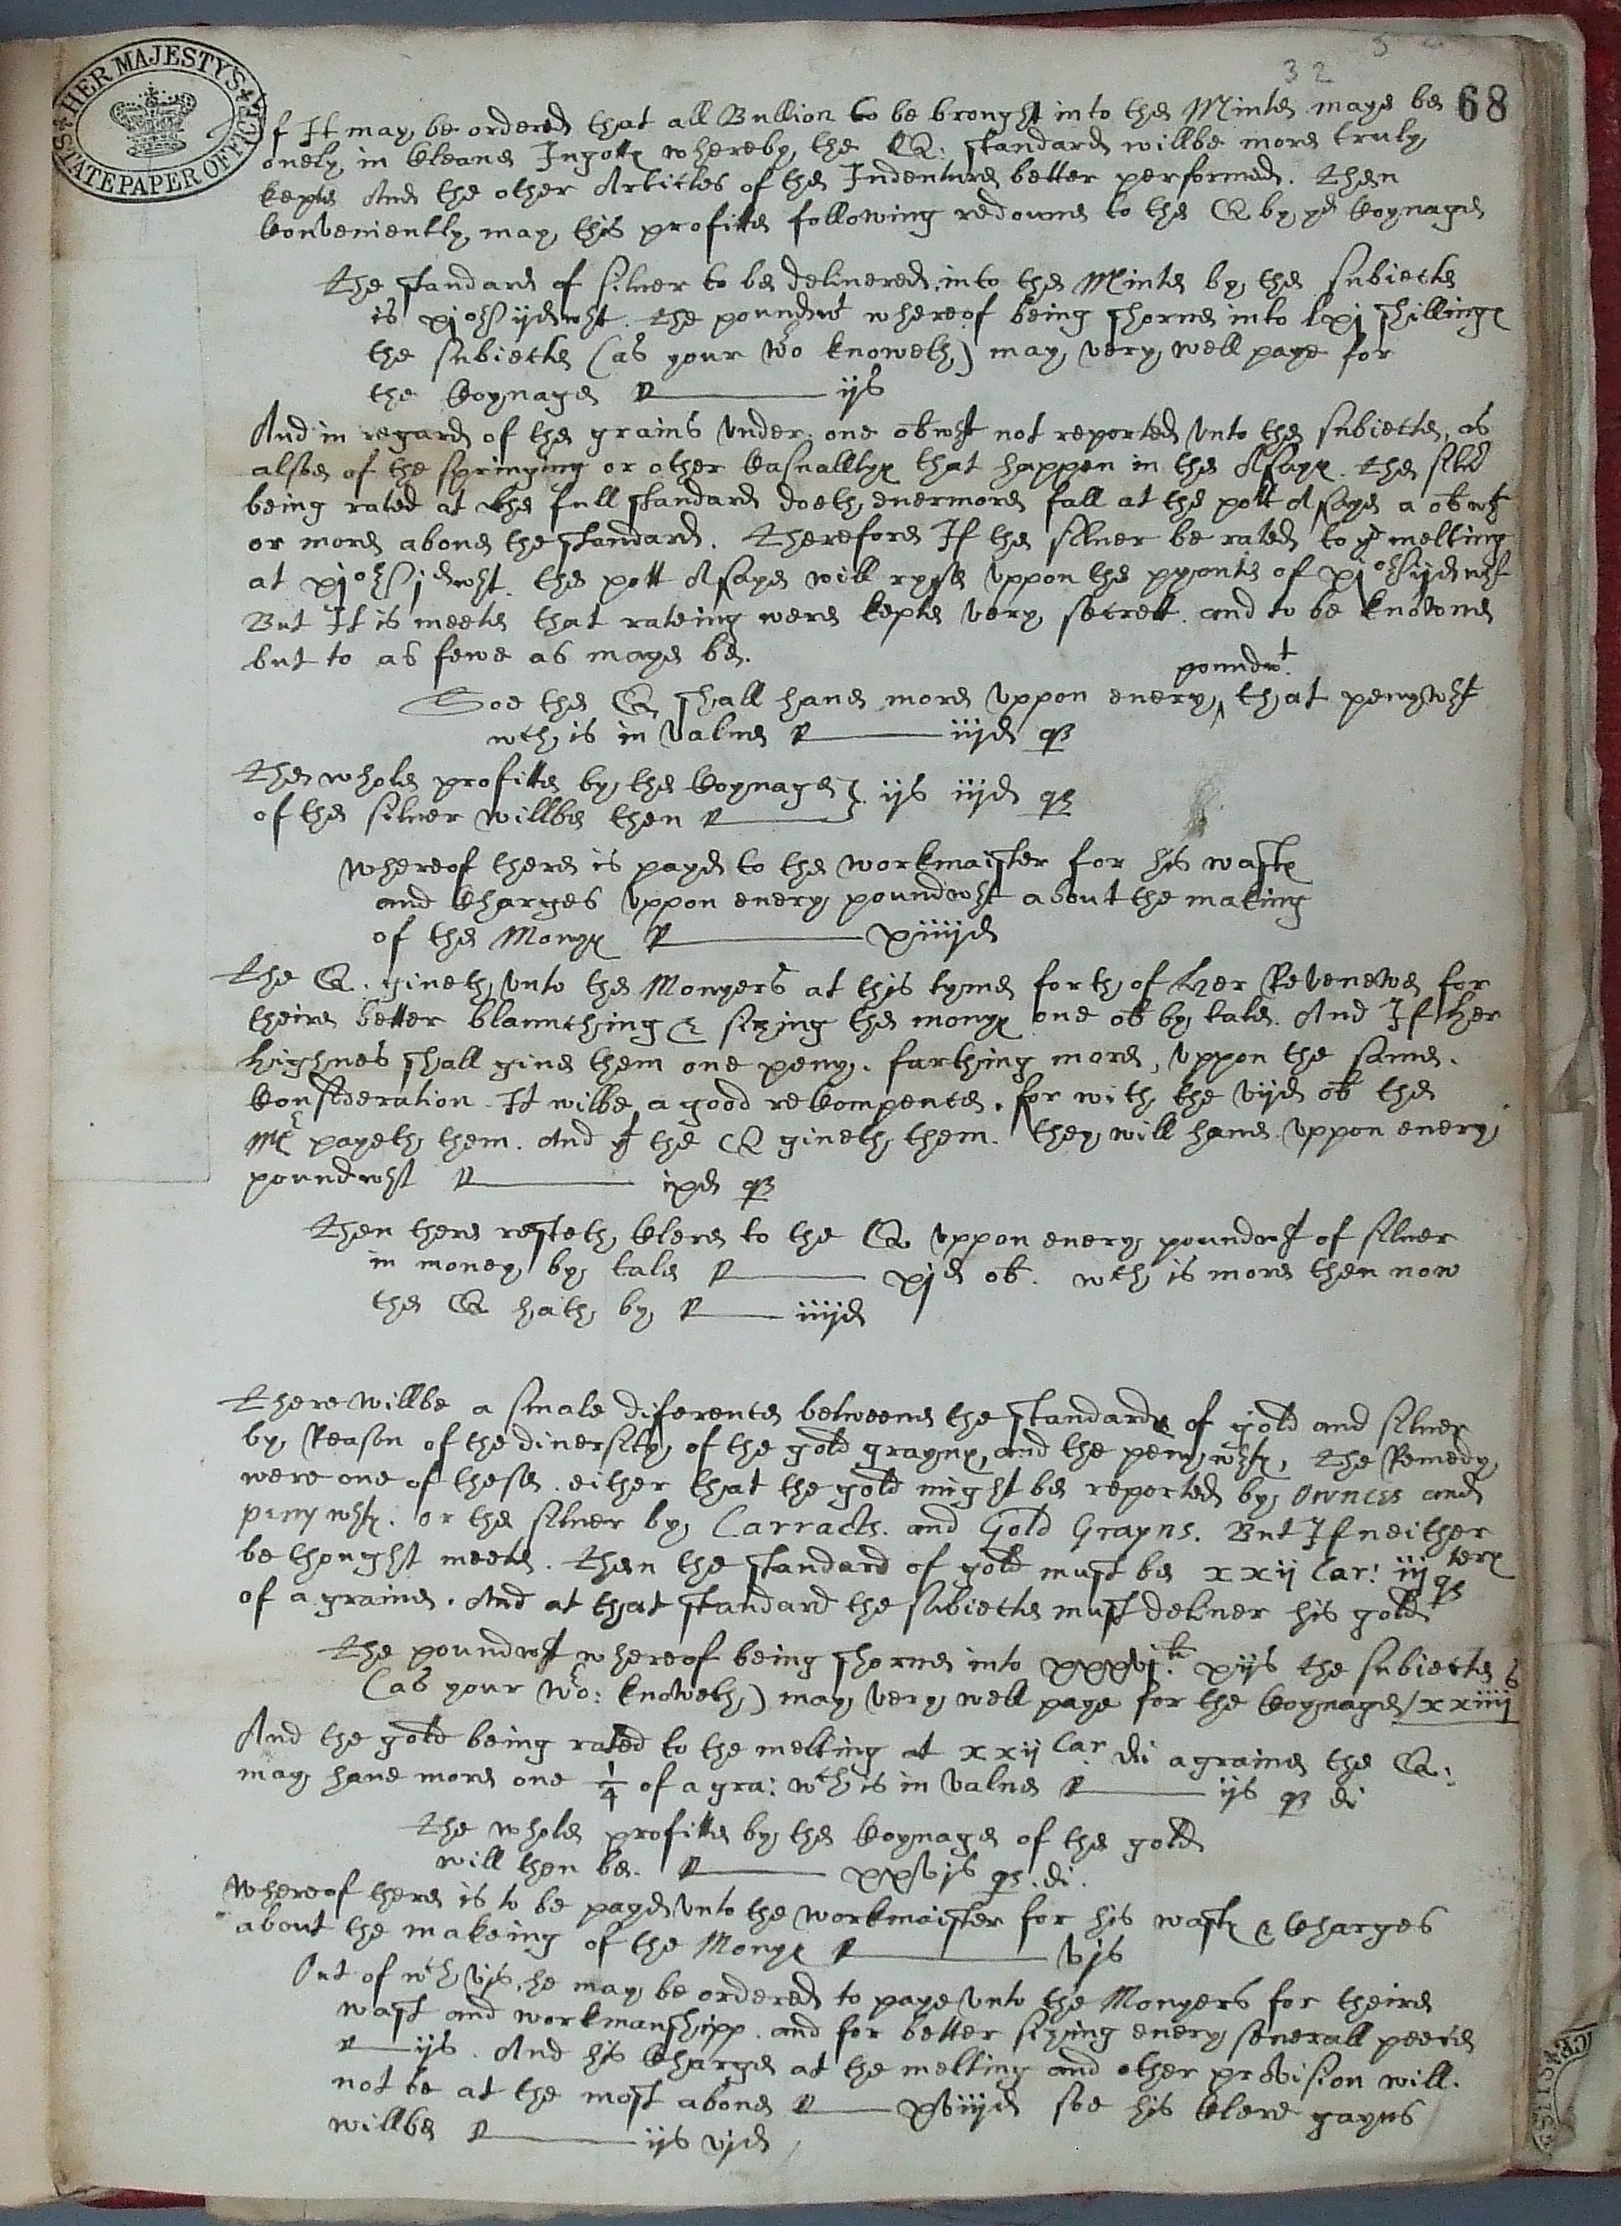 32
68
HER MAJESTY'S
STATE PAPER OFFICE
If It may be ordered that all Bullion to be brought into the Minte maye be
onely in Cleane Ingottes whereby the Q: standard willbe more truly
kepte And the other Articles of the Indenture better performed. Then
Conveniently may this profitte following redowne to the Q by ye Coynage
The standard of silver to be delivered into the Minte by the subiecte
is xjoz ijdwht. the poundwt whereof being shorne into lxj shillinges
the subiecte (as your wo knoweth) may very well paye for
the Coynage ijs
And in regard of the grains under one obwht not reported unto the subiecte, as
alsoe of the springing or other Casualltyes that happen in the Assayes. The silver
being rated at the full standard doeth evermore fall at the pott Assaye a obwht
or more above the standard. Therefore If the silver be rated to ye melting
at xjoz jdwht. the pott Assaye will ryse uppon the poynte of xjoz ijdwht
But It is meete that rateing were kepte very secrett. and to be knowne
but to as fewe as maye be.
poundwt
Soe the Q shall have more uppon every that penywht
wch is in value iijd q
The whole profitte by the Coynage ijs iijd q
of the silver willbe then
whereof there is payd to the workmaister for his wastes
and Charges uppon every poundwht about the making
of the Monyes xiiijd
The Q. giveth unto the Monyers at this tyme forth of her Revenewe for
theire better blaunching & sizing the monyes one ob by tale. And If her
highnes shall give them one peny farthing more, uppon the same
Consideration It wilbe a good recompence. for with the vijd ob the
Mr payeth them. And yt the Q giveth them. they will have uppon every
poundwht ixd q
Then there resteth Clere to the Q uppon every poundwht of silver
in money by tale xjd ob. wch is more then now
the Q hath by iiijd
There willbe a smale diference betweene the standardes of gold and silver
by Reason of the diversity of the gold graynes, and the penywhtes, The Remedy
were one of these. either that the gold might be reported by Ownces and
peny whtes. or the silver by Carracts. and Gold Grayns. But If neither
be thought meete. Then the standard of gold must be xxij Car: iij qrters
of a graine. And at that standard the subiecte must deliver his gold
The poundwht whereof being shorne into xxxvjli. xijs the subiecte
(as your wo: knoweth) may very well paye for the Coynage / xxiiijs
And the gold being rated to the melting at xxij Car di a graine the Q:
may have more one 1/4 of a gra: wch is in value ijs q di
The whole profitte by the Coynage of the gold
will then be. xxvjs q. di.
Whereof there is to be payd unto the workmaister for his wastes & Charges
about the makeing of the Monyes vjs
Out of wch vjs, he may be ordered to paye unto the Monyers for theire
wast and workmanshipp. and for better sizing every severall peece
ijs. And his Charge at the melting and other provision will
not be at the most above xviijd soe his Clere gayns
willbe ijs vjd